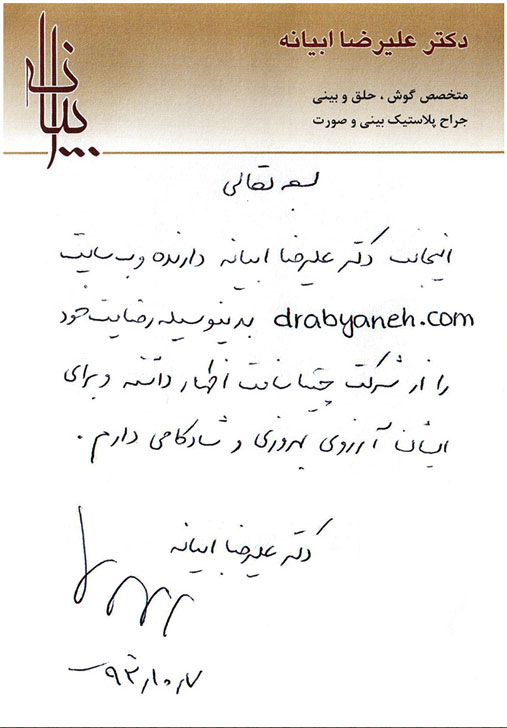 دکتر علیرضا ابیانه
ابیانه
متخصص گوش ، حلق و بینی
جراح پلاستیک بینی و صورت
بسمه تعالی
اینجانب دکتر علیرضا ابیانه دارنده وب سایت
drabyaneh.com بدینوسیله رضایت خود
را از شرکت چیتا سافت اظهار داشته و برای
ایشان آرزوی بهروزی و شادکامی دارم .
دکتر علیرضا ابیانه
۹۳/۱۰/۷